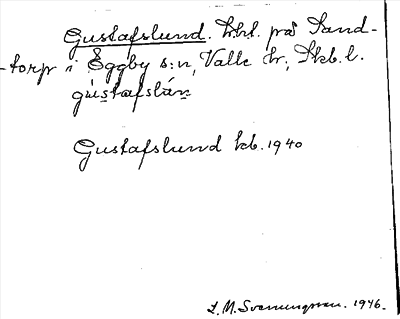 Gustafslund. Lht. på Sand-
-torp i Eggby s:n, Valle hr, Skb. l.
gùstafslán
Gustafslund kb. 1940
L. M. Svenungsson. 1946.